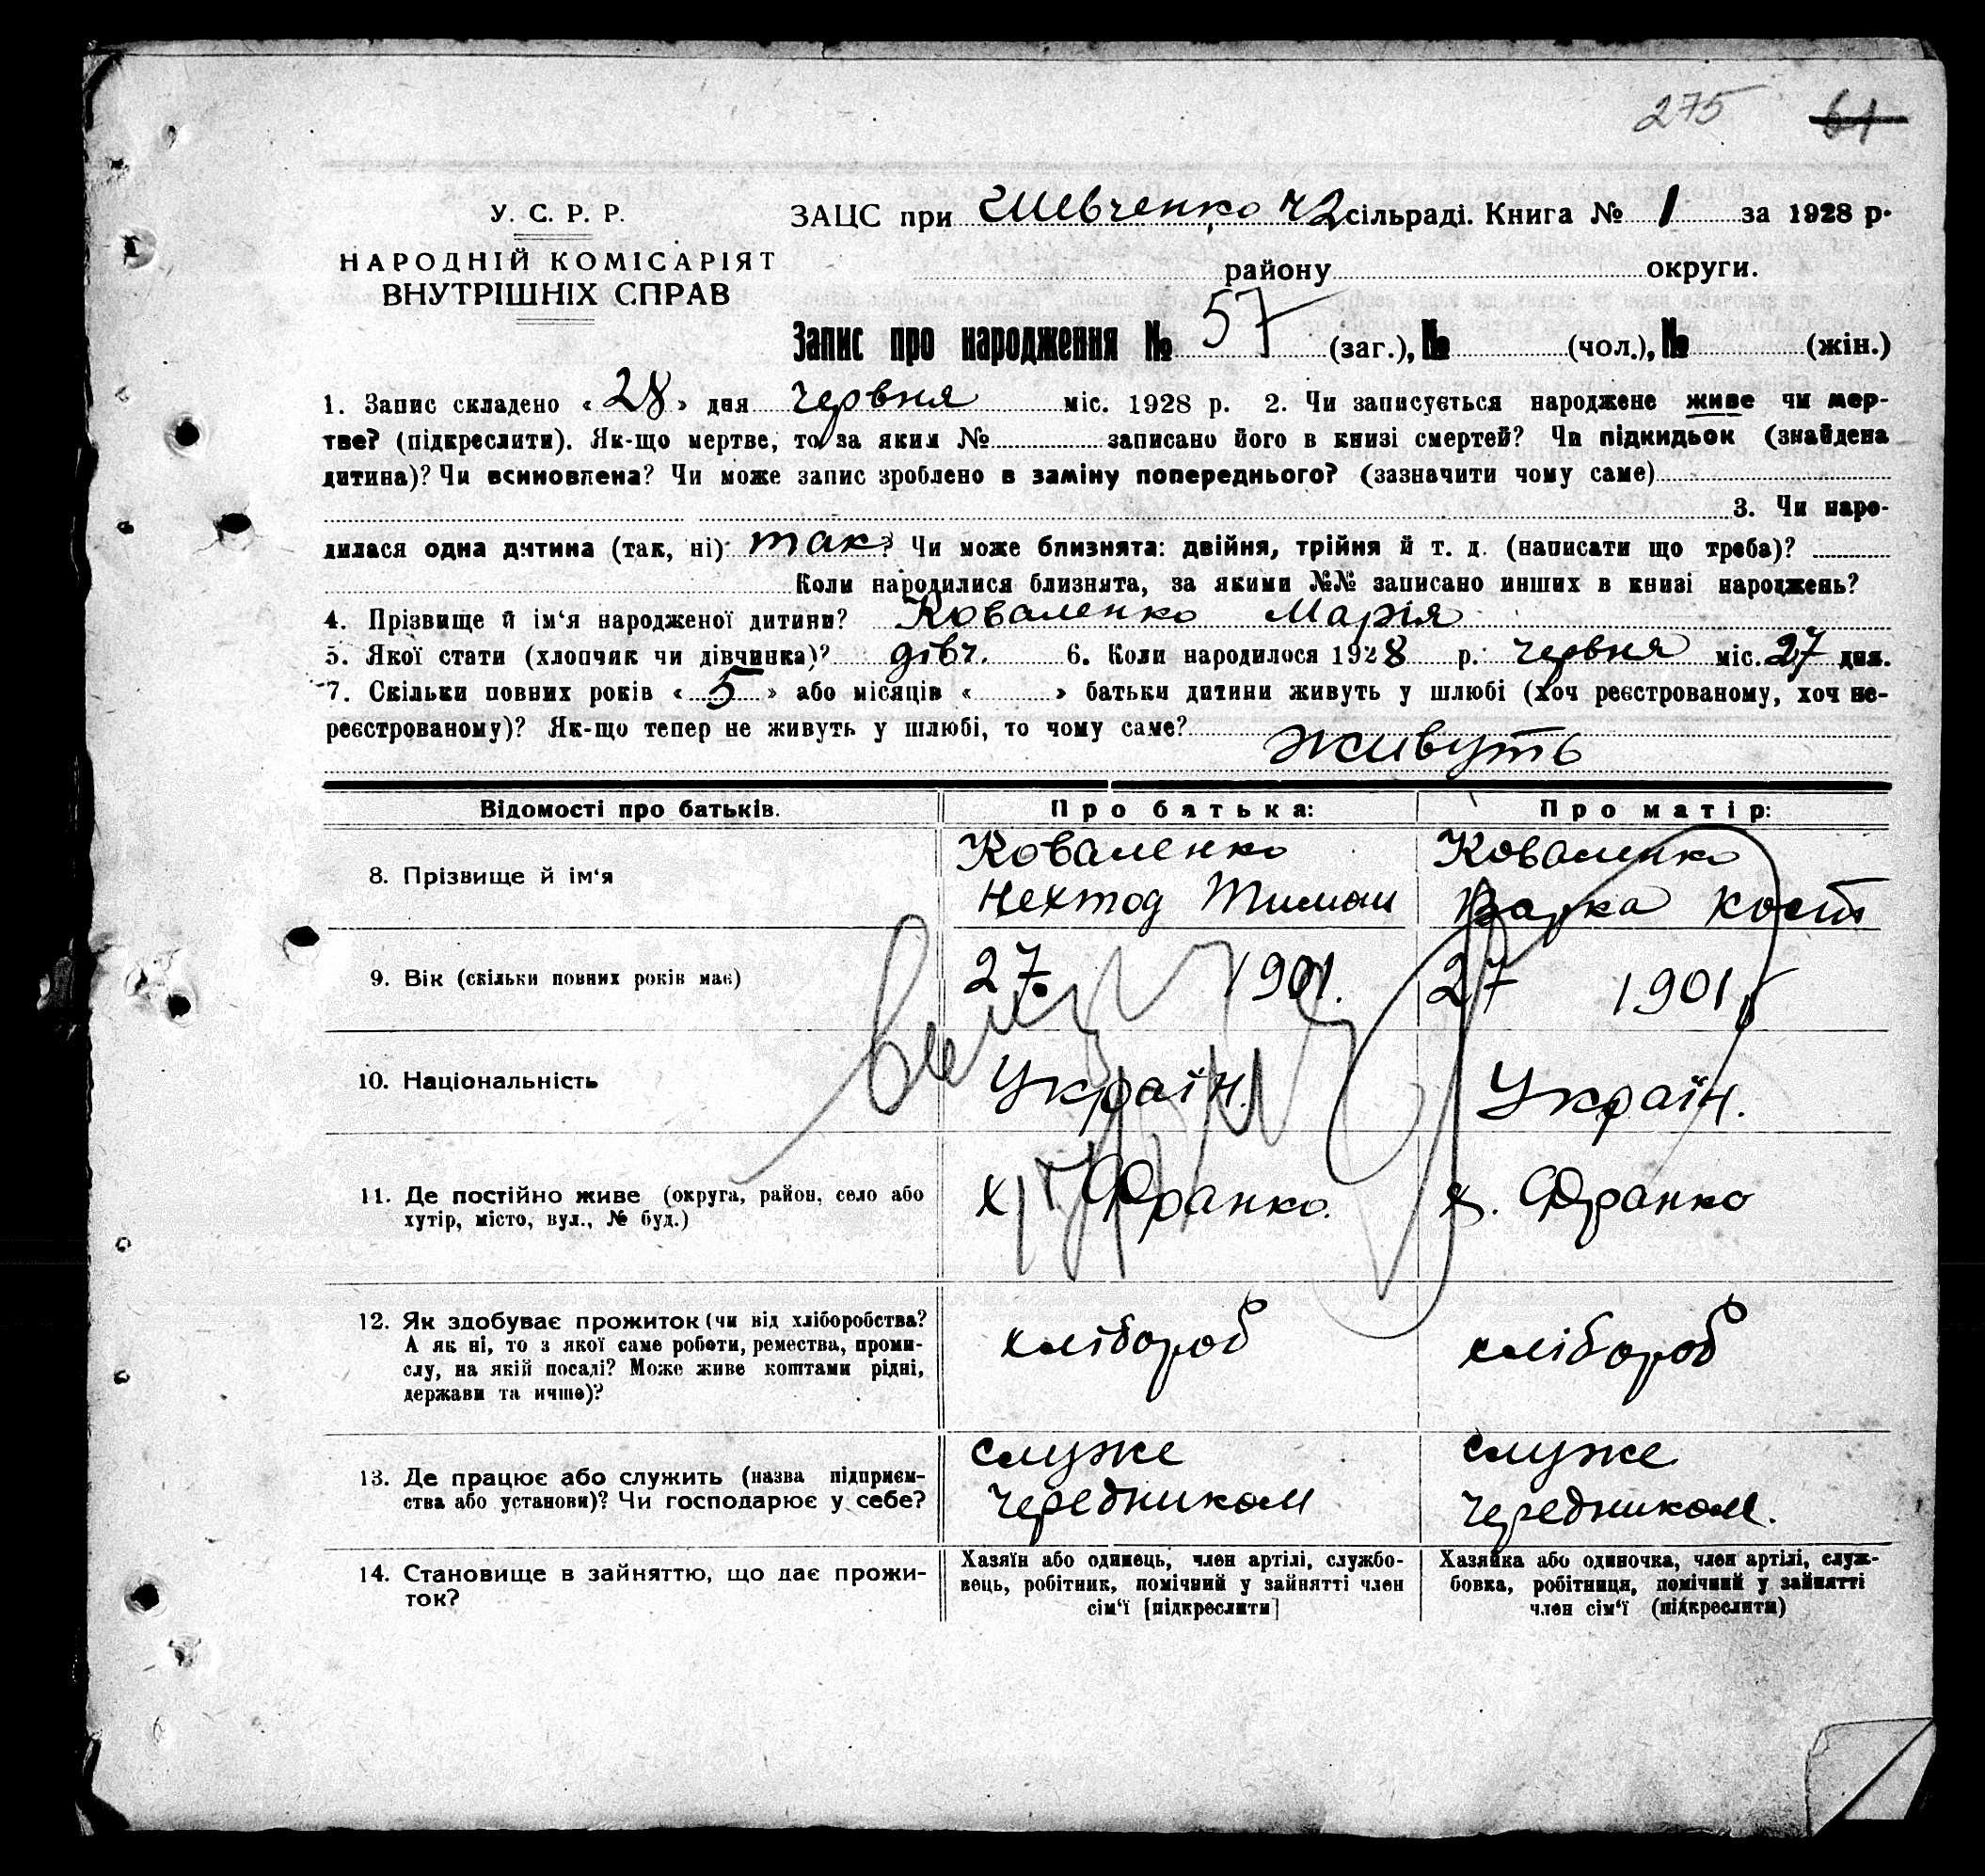 275 61
У. С. Р. Р.
НАРОДНІЙ КОМІСАРІЯТ
ВНУТРІШНІХ СПРАВ
ЗАЦС при Шевченко № 2 сільраді. Книга № 1 за 1928 р.
району округи.
Запис про народження № 57 (заг.), № (чол.), № (жін.)
1. Запис складено « 28 » дня червня міс. 1928 р. 2. Чи записується народжене живе чи мер-
тве? (підкреслити). Як-що мертве, то за яким № записано його в книзі смертей? Чи підкидьок (знайдена
дитина)? Чи всиновлена? Чи може запис зроблено в заміну попереднього? (зазначити чому саме)
3. Чи наро-
дилася одна дитина (так, ні) так? Чи може близнята: двійня, трійня й т. д. (написати що треба)?
Коли народилися близнята, за якими №№ записано инших в книзі народжень?
4. Прізвище й ім'я народженої дитини? Коваленко Марія
5. Якої стати (хлопчик чи дівчинка)? дівч. 6. Коли народилося 1928 р. червня міс. 27 дня.
7. Скільки повних років « 5 » або місяців « » батьки дитини живуть у шлюбі (хоч реєстрованому, хоч не-
реєстрованому)? Як-що тепер не живуть у шлюбі, то чому саме?
живуть
Відомості про батьків. Про батька: Про матір:
8. Прізвище й ім'я
Коваленко
Нехтод Тимош
Коваленко
Варка Кост
9. Вік (скільки повних років має) 27. 1901. 27 1901
10. Національність Україн. Україн.
11. Де постійно живе (округа, район, село або
хутір, місто, вул., № буд.)
х. Франко.
х. Франко
12. Як здобуває прожиток (чи від хліборобства?
А як ні, то з якої саме роботи, ремества, проми-
слу, на якій посаді? Може живе коштами рідні,
держави та инше)?
хлібороб
хлібороб
13. Де працює або служить (назва підприєм-
ства або установи)? Чи господарює у себе?
служе
чередником
служе
чередником.
14. Становище в зайняттю, що дає прожи-
ток?
Хазяїн або одинець, член артілі, службо-
вець, робітник, помічний у зайнятті член
сім'ї [підкреслити]
Хазяйка або одиночка, член артілі, служ-
бовка, робітниця, помічний у зайнятті
член сім'ї (підкреслити)